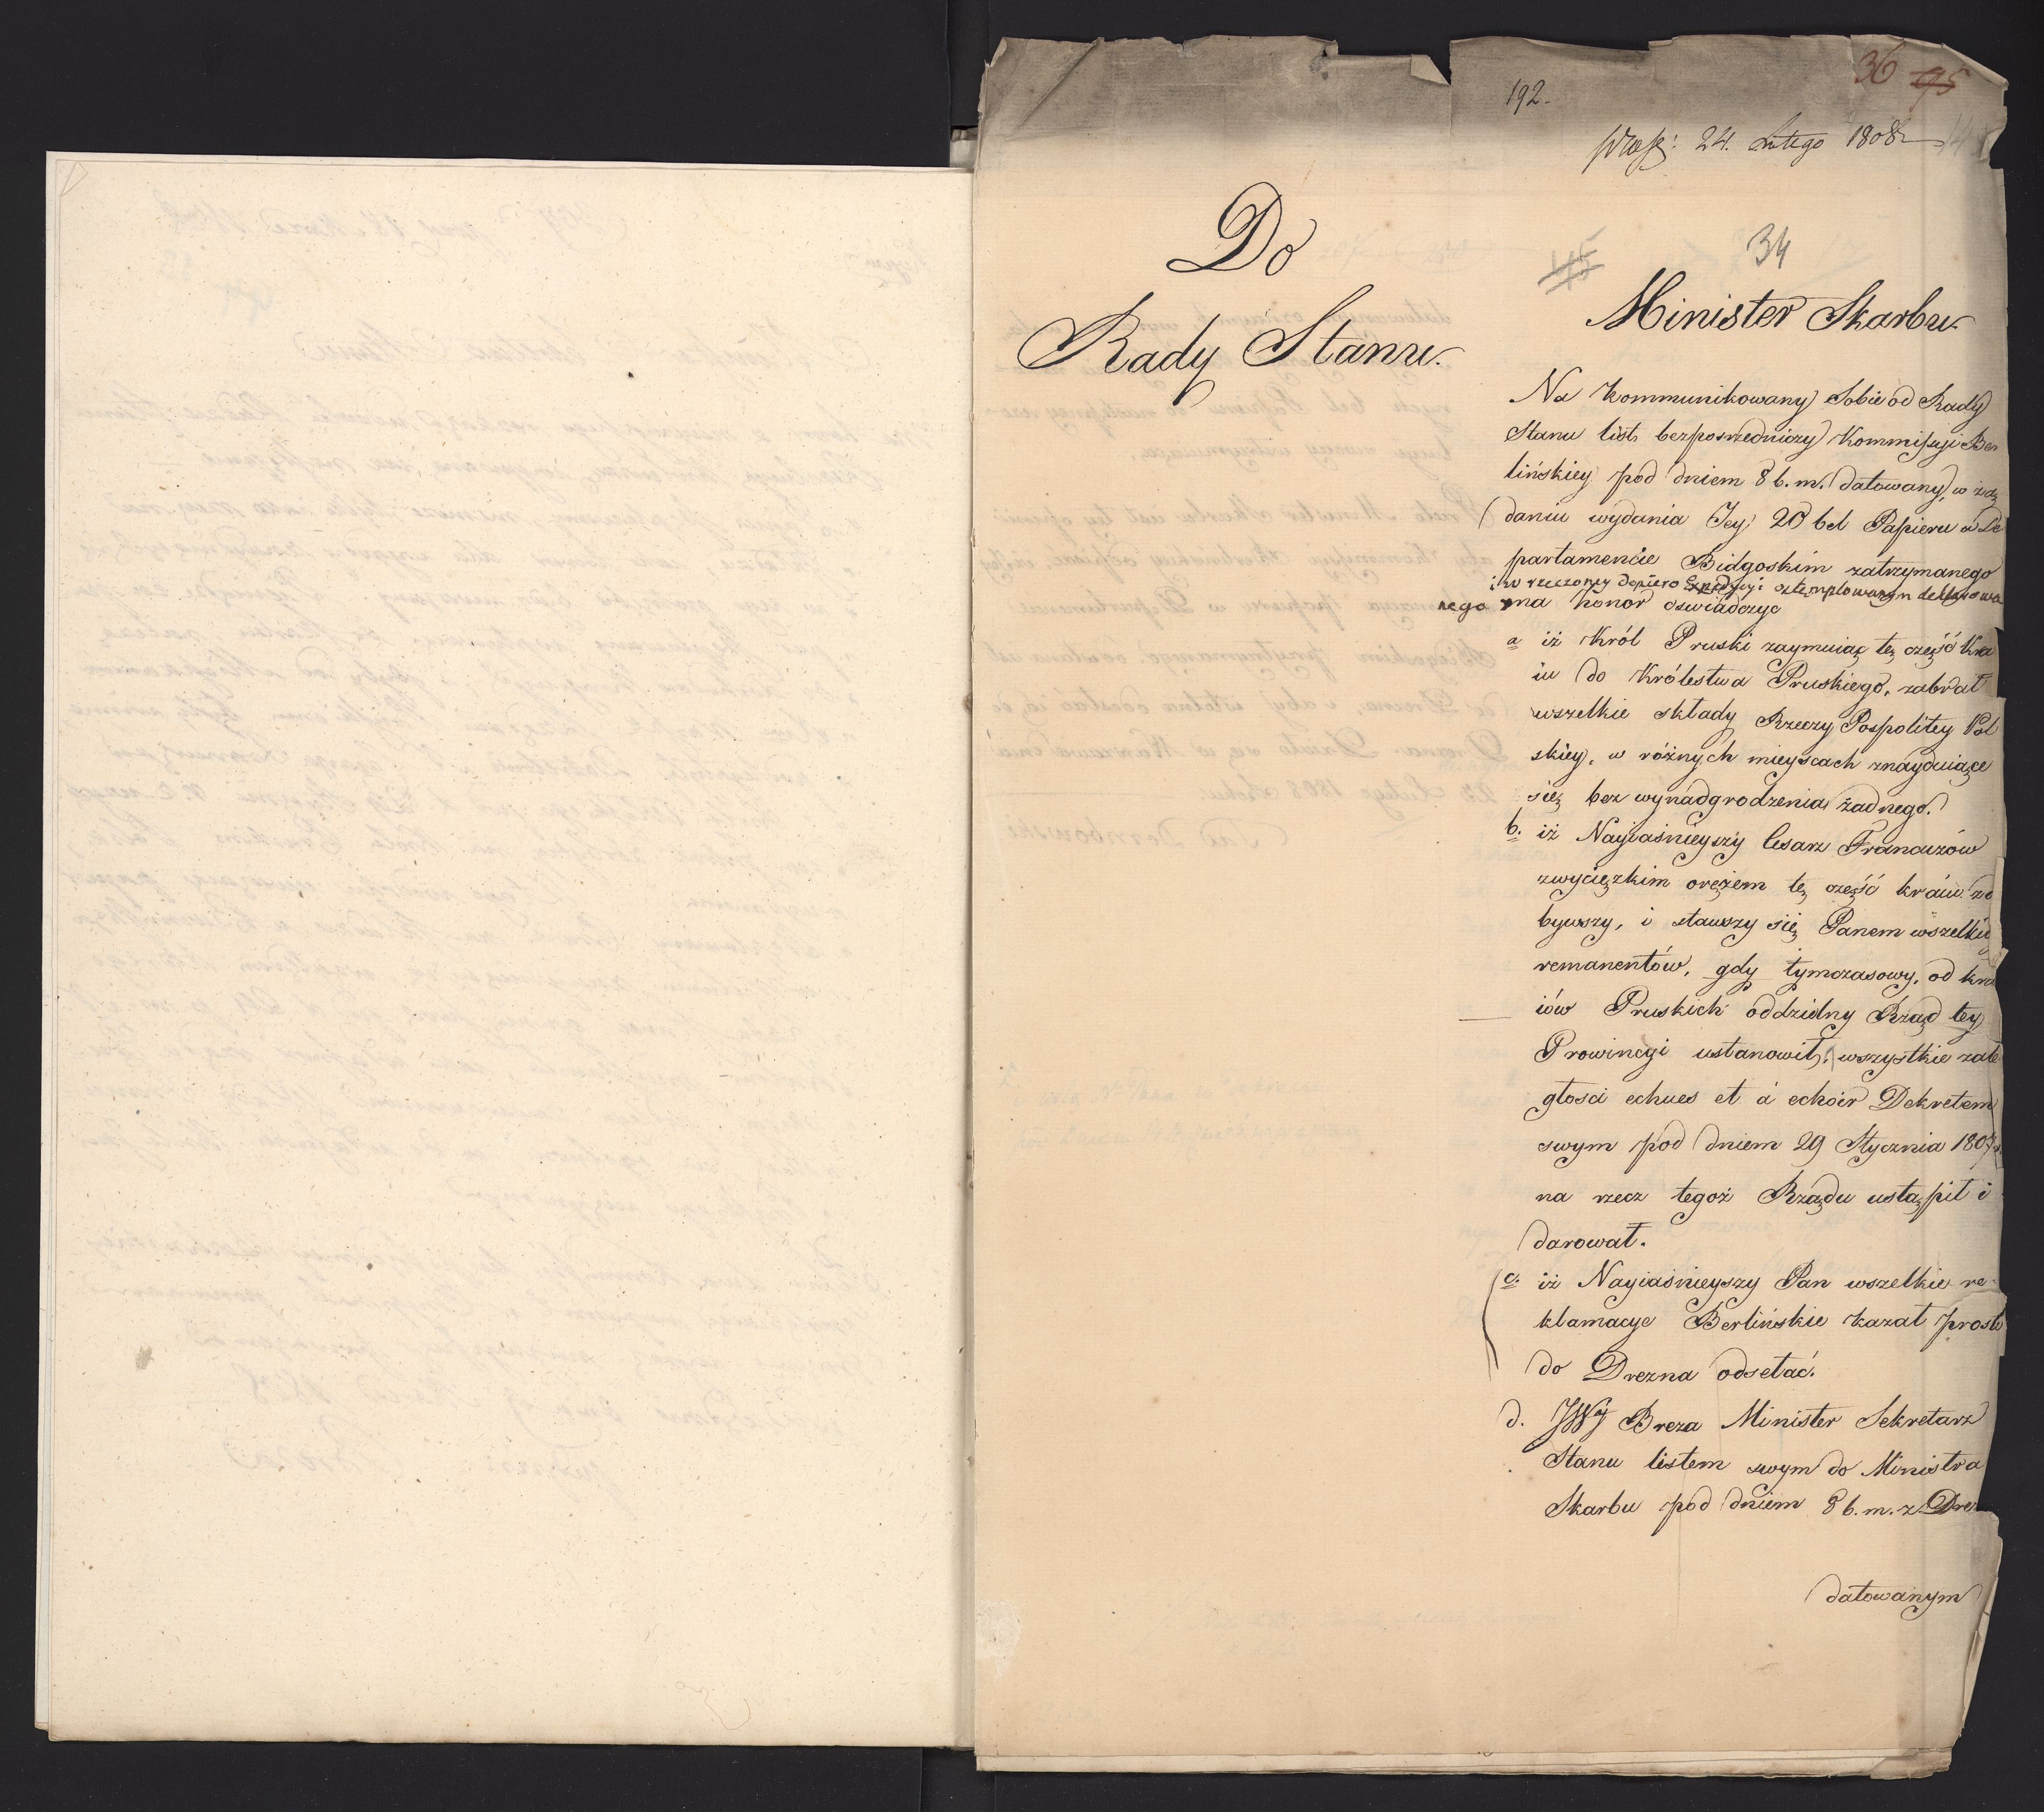 36 95
192.
24. Lutego 1808
34
Do
Rady Stanu.
Minister Skarbu.
Na kommunikowany Sobie od Rady
Stanu list bezpośredniczy Kommissyi Ber
lińskiey pod dniem 8 b. m. datowany, w żą
daniu wydania Jey 20 bel Papieru w De
partamencie Bidgoskim zatrzymanego
i w rzeczoney dopiero Expedycyi ostemplowanym
nego ma honor oświadczyć
a iż Król Pruski zaymuiąc tę część Kra
iu do Królestwa Pruskiego, zabrał
wszelkie składy Rzeczy Pospolitey Pol
skiey, w różnych mieyscach znayduiące
się bez wynadgrodzenia żadnego.
b. iż Nayiaśnieyszy Cesarz Francuzów
zwycięzkim orężem tę część kraiu zdo
bywszy, i stawszy się Panem wszelkich
remanentów, gdy tymczasowy, od kra
iów Pruskich oddzielny Rząd tey
Prowincyi ustanowił, wszystkie zale
głosci echues et á echoir Dekretem
swym pod dniem 29 Stycznia 1807 r.
na rzecz tegoż Rządu ustąpił i
darował.
c. iż Nayiaśnieyszy Pan wszelkie re-
klamacye Berlińskie kazał prosto
do Drezna odsełać.
d. JWy Breza Minister Sekretarz
Stanu listem swym do Ministra
Skarbu pod dniem 8 b. m. z Drez
datowanym